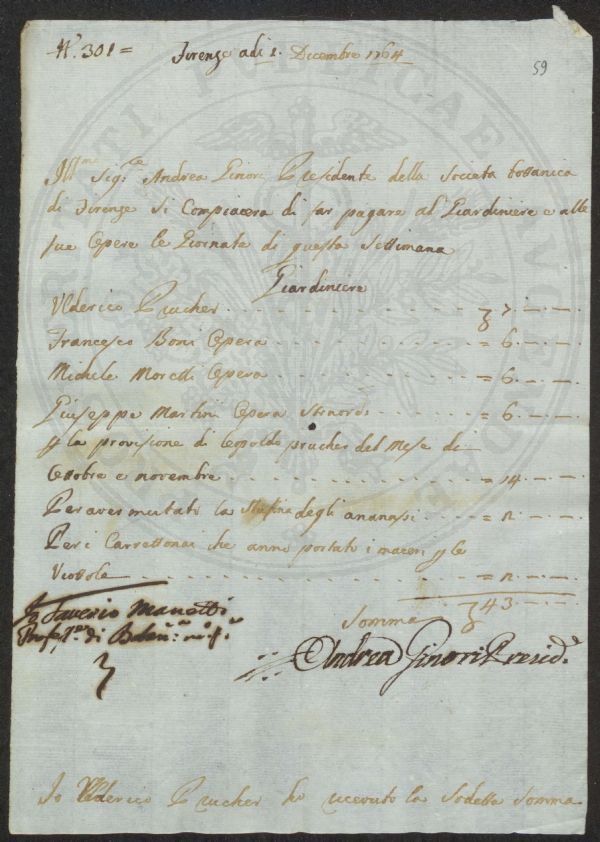 N.° 301 =
Firenze adi 1. Dicembre 1764
59
Ill.mo Sig.re Andrea Ginori Presidente della Societa bottanica
di Firenze si Compiacera di far pagare al Giardiniere e alle
sue Opere le Giornate di questa Settimana
Giardiniere
Ulderico Prucher . . . . . . . . 7 . — . —
Francesco Boni Opera . . . . . . . = 6 . — . —
Michele Moretti Opera . . . . . . . = 6 . — . —
Giuseppe Martini Opera . . . . . = 6 . — . —
la provisione di leopoldo prucher del Mese di
Ottobre e novembre . . . . . . . . = 14 . — . —
Per aver mutato la Stufina degli ananassi . . . = 2 . — . —
Per i Carrettonai che anno portato i
le
= 2 . — . —
Somma 43 . — . —
Saverio Manetti
Prof.
Andrea Ginori Presid.e
Io Ulderico Prucher ho riceuto la Sodetta Somma